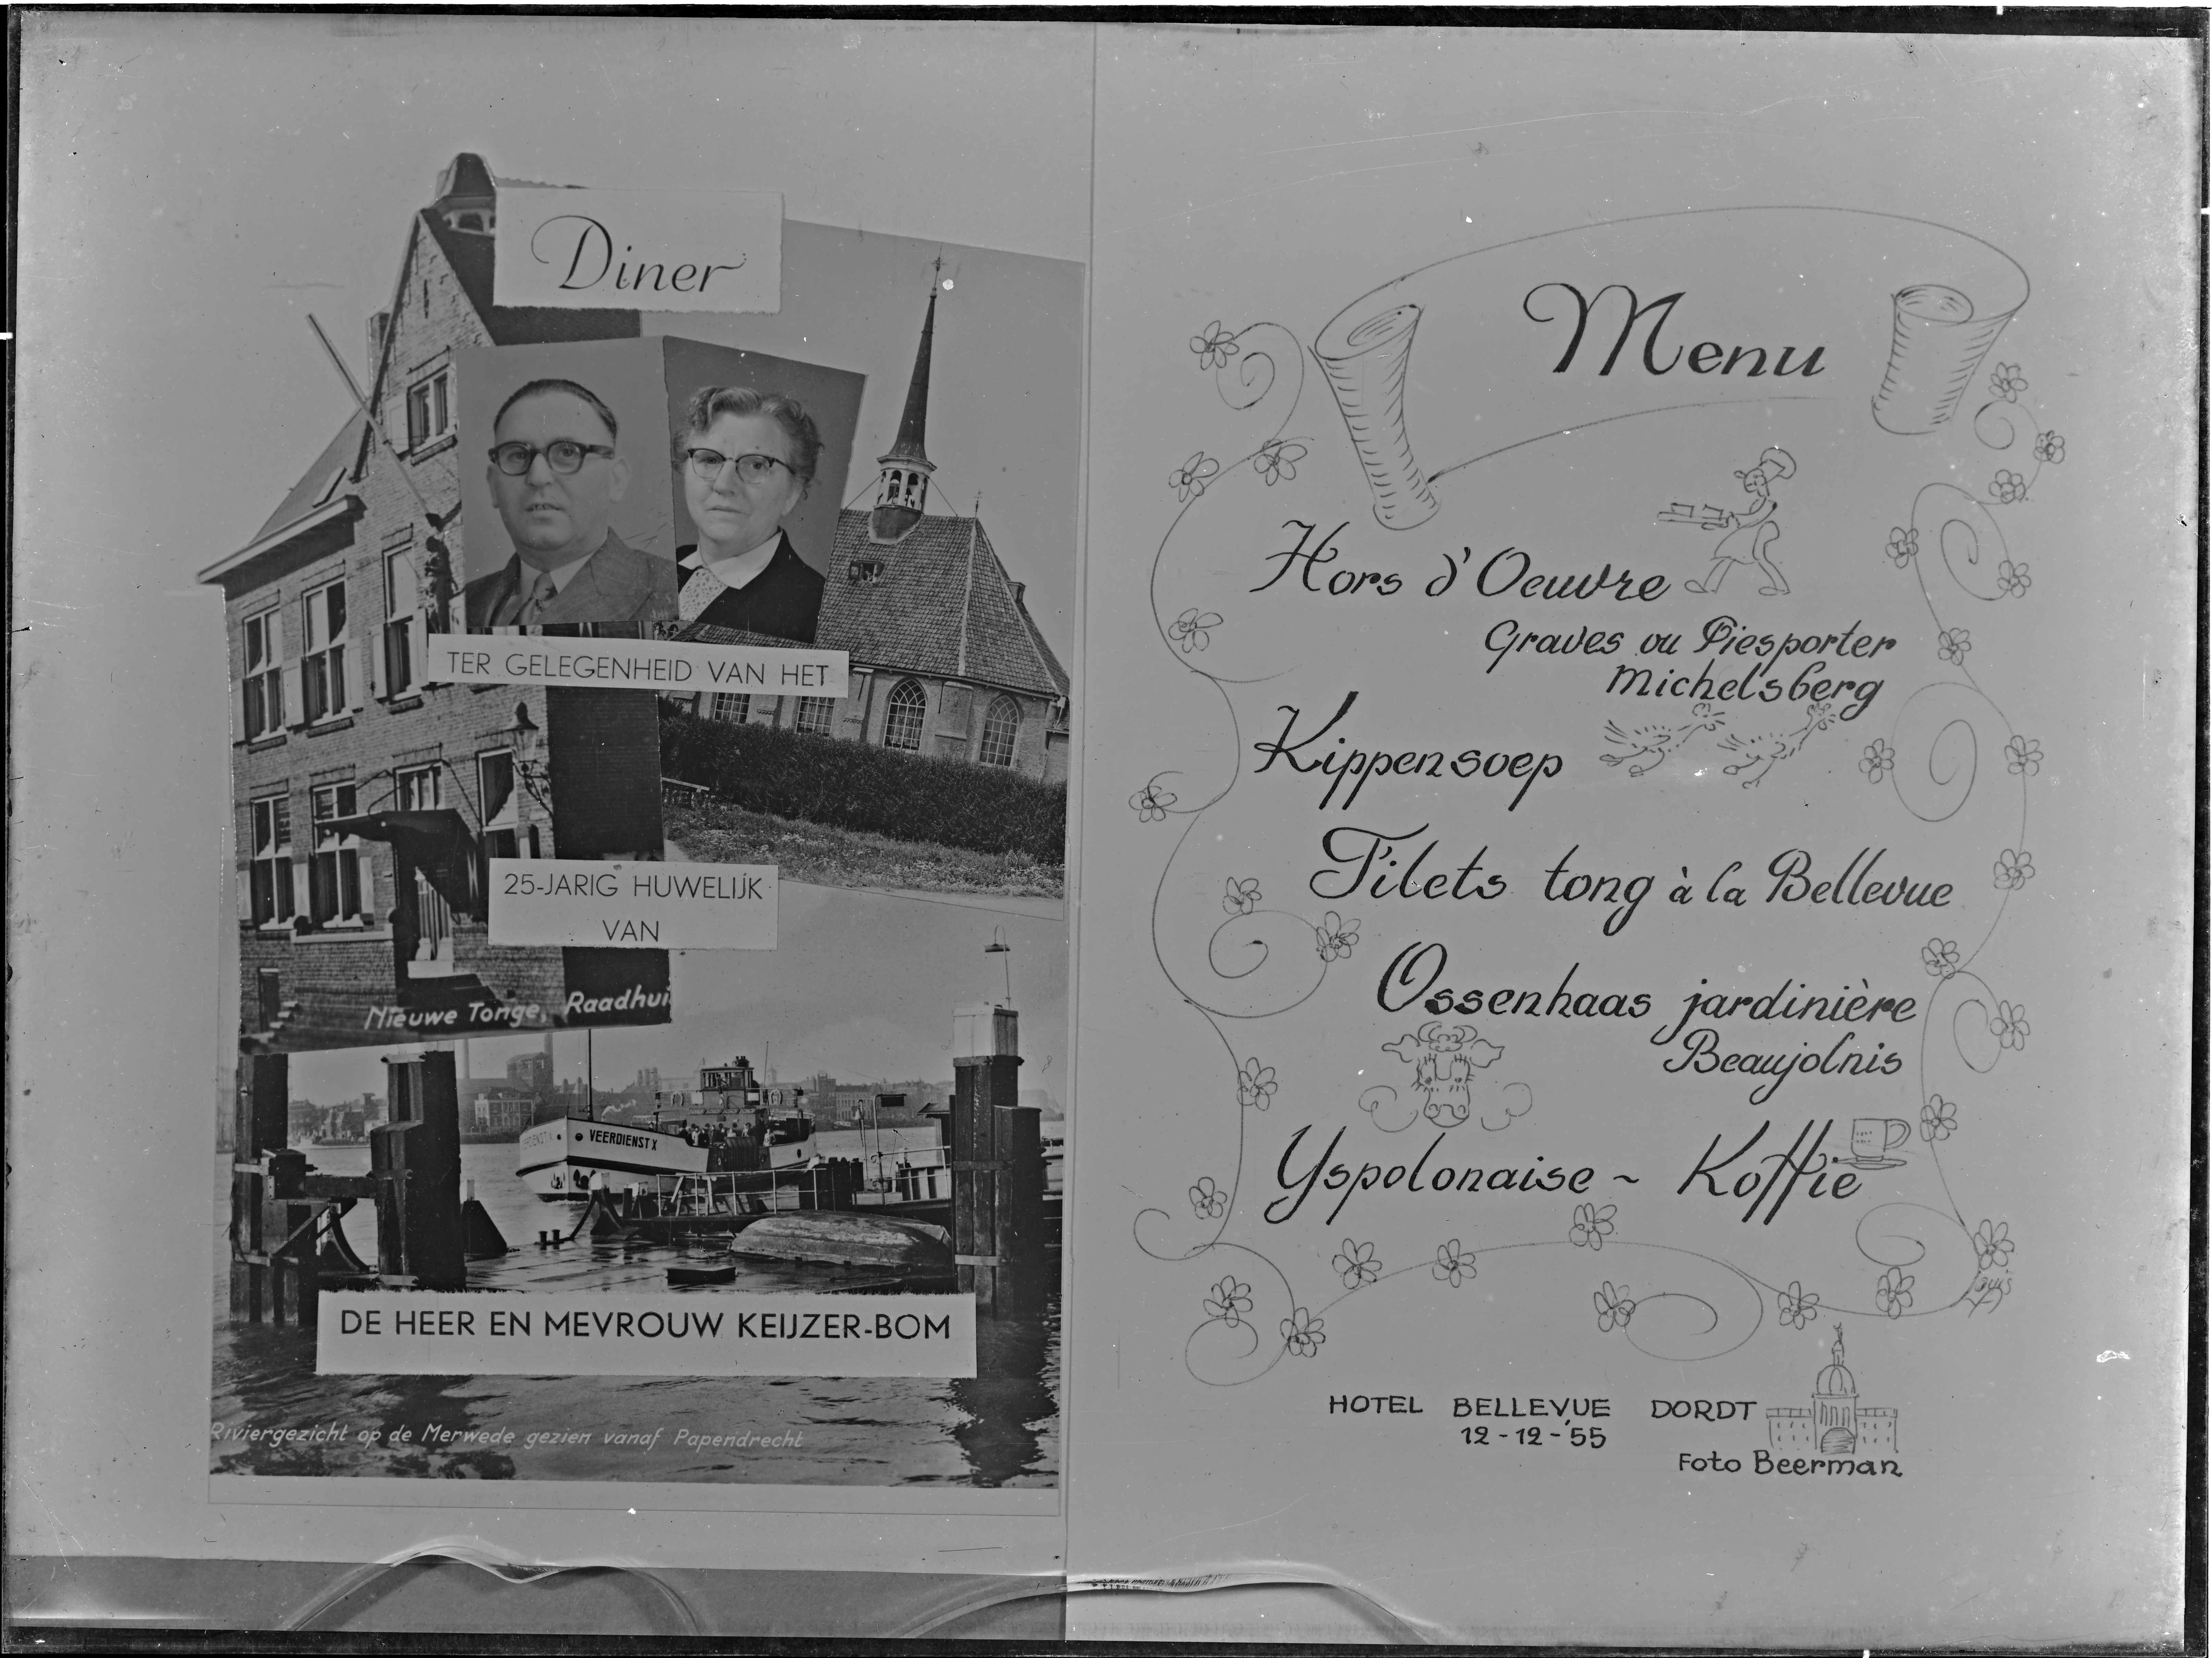 Diner
TER GELEGENHEID VAN HET
25-JARIG HUWELIJK
VAN
Nieuwe Tonge, Raadhui
VEERDIENST X
DE HEER EN MEVROUW KEIJZER-BOM
Riviergezicht op de Merwede gezien vanaf Papendrecht
Menu
Hors d'Oeuvre
Graves ou Piesporter
Michelsberg
Kippensoep
Filets tong à la Bellevue
Ossenhaas jardinière
Beaujolnis
Yspolonaise ~ Koffie
HOTEL BELLEVUE DORDT
12-12-'55
Foto Beerman